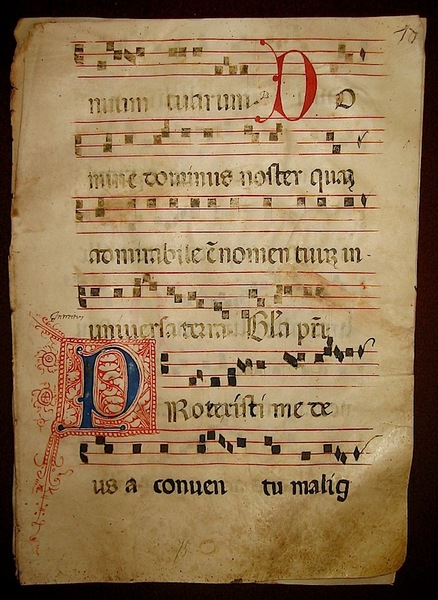 nuum tuarum D O
mine dominus noster quaz
admirabile ē nomen tuuz in-
universa terra Gl̄a pr̄i
P Rotexisti me de
us a conuen tu malig